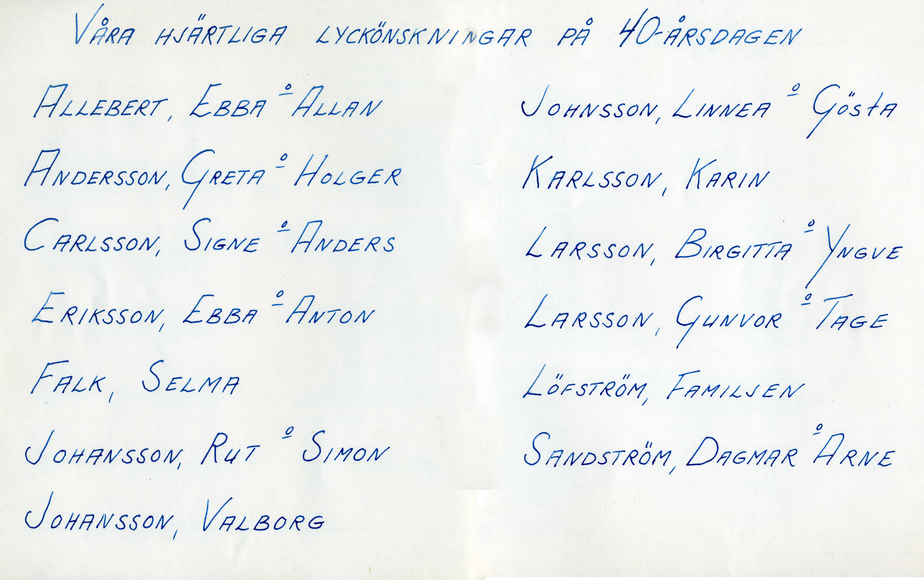 Våra hjärtliga lyckönskningar på 40-årsdagen
Allebert, Ebba o Allan
Andersson, Greta o Holger
Carlsson, Signe o Anders
Eriksson, Ebba o Anton
Falk, Selma
Johansson, Rut o Simon
Johansson, Valborg
Johnsson, Linnea o Gösta
Karlsson, Karin
Larsson, Birgitta o Yngve
Larsson, Gunvor o Tage
Löfström, Familjen
Sandström, Dagmar o Arne